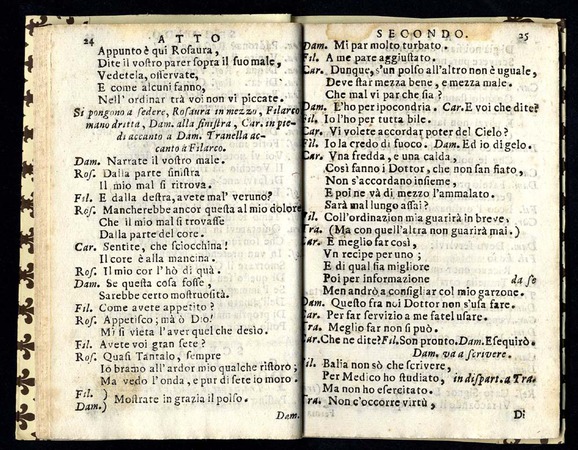 24 ATTO
Appunto è qui Rosaura,
Dite il vostro parer sopra il suo male,
Vedetela, osservate,
E come alcuni fanno,
Nell' ordinar trà voi non vi piccate.
Si pongono a sedere, Rosaura in mezzo, Filarco
mano dritta, Dam. alla sinistra, Car. in pie-
di accanto a Dam. Tranella ac-
canto à Filarco.
Dam. Narrate il vostro male.
Ros. Dalla parte sinistra
Il mio mal si ritrova.
Fil. E dalla destra, avete mal' veruno?
Ros. Mancherebbe ancor questa al mio dolore
Che il mio mal si trovasse
Dalla parte del core.
Car. Sentite, che sciocchina!
Il core è alla mancina.
Ros. Il mio cor l'hò di quà.
Dam. Se questa cosa fosse,
Sarebbe certo mostruosità.
Fil. Come avete appetito?
Ros. Appetisco; mà ò Do!
Mi si vieta l'aver quel che desio.
Fil. Avete voi gran sete?
Ros. Quasi Tantalo, sempre
Io bramo all'ardor mio qualche ristoro;
Ma vedo l'onda, e pur di sete io moro.
Fil. )
Dam. ) Mostrate in grazia il polso.
Dam.
SECONDO. 25
Dam. Mi par molto turbato.
Fil. A me pare aggiustato.
Car. Dunque, s'un polso all'altro non è uguale,
Deve star mezza bene, e mezza male.
Che mal vi par che sia?
Dam. E l'ho per ipocondria. Car. E voi che dite?
Fil. Io l'ho per tutta bile.
Car. Vi volete accordar poter del Cielo?
Fil. Io la credo di fuoco. Dam. Ed io di gelo.
Car. Vna fredda, e una calda,
Così fanno i Dottor, che non san fiato,
Non s'accordano insieme,
E poi ne và di mezzo l'ammalato.
Sarà mal lungo assai?
Fil. Coll'ordinazion mia guarirà in breve,
Tra. (Ma con quell'altra non guarirà mai.)
Car. E meglio far così,
Vn recipe per uno;
E di qual sia migliore
Poi per informazione da se
Men andrò a consigliar col mio garzone.
Dam. Questo fra noi Dottor non s'usa fare.
Car. Per far servizio a me fatel usare.
Tra. Meglio far non si può.
Car. Che ne dite? Fil. Son pronto. Dam. Esequirò.
Dam. va a scrivere.
Fil. Balia non sò che scrivere,
Per Medico ho studiato, in dispart. a Tra.
Ma non ho esercitato.
Tra. Non c'occorre virtù,
Di